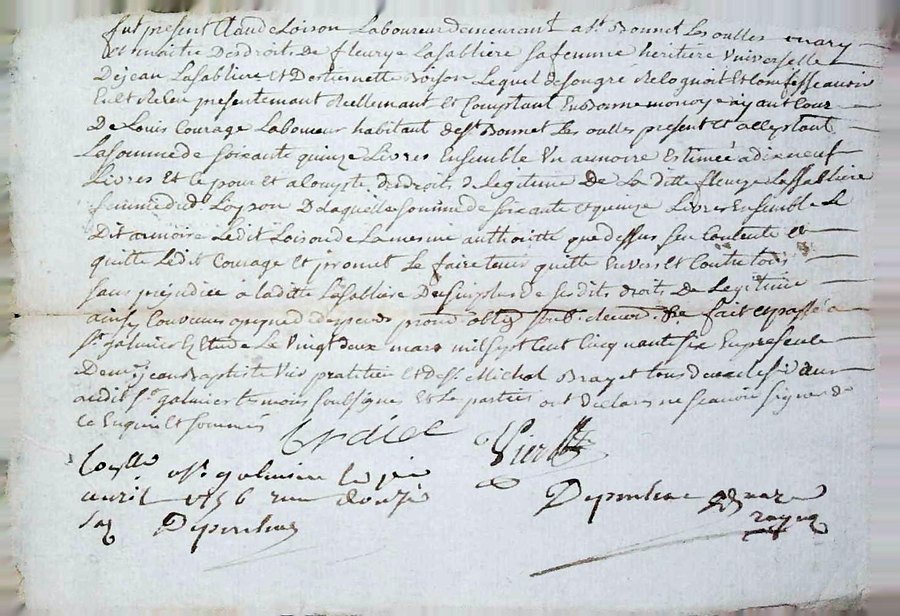 fut présent Claude Loison Laboureur demeurant a St Bonnet Les oulles mary
et maitre Des droits de fleurye Lasabliere sa femme héritiere Universelle
De jean Lasabliere et D'estiennette Loison Lequel de son gré Recognoit et Confesse avoir
Eu et Receu presentemant Réellemant et Comptant En Bonne monoye ayant Cour
De Louis Courage Laboureur habitant de St Bonnet Les oulles présent et acceptant
La somme de soixante quinze Livres Ensemble Un armoire Estimée a dix neuf
Livres et ce pour et a Compte des droits de Legitime De La ditte fleurye Lassabliere
femme dud. Loyson De laquelle somme de soixante et quinze Livres Ensemble Le
Dit armoire Ledit Loison de La mesme authorité que dessus sen Contente et
quitte Ledit Courage et promet Le faire tenir quitte Envers et Contre tous
sans préjudice à la ditte Lasabliere Du surplus de ses dits droit De Legitime
ainsy Convenus a peyne d despends prom. oblig. soub. renon. fait et passé a
St galmier Etude Le vingt deux mars mil sept Cent Cinquant six En presence
De mr jean Baptiste praticien et De Sr Michel tous deux
audit St galmier témoins soussignés Et Les parties ont déclaré ne scavoir signer de
Ce Enquis et sommés
Con.llé a St galmier Le
avril 1756 reçu douze
sols Deponchae
Deponchae